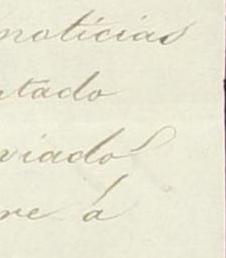 noticias
tado
viado
re á